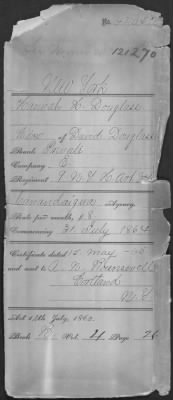 121270
New York
Hannah L Douglass
Widow of David Douglass
Rank Private
Company B
Regiment 9 N.Y. H. Art
Canandaigua Agency.
Rate per month, $8
Commencing 31 July 1864
Certificate dated 15 May
and sent to
Cortland
N.Y.
Act 14th July, 1862.
Book B Vol. 4 Page 26